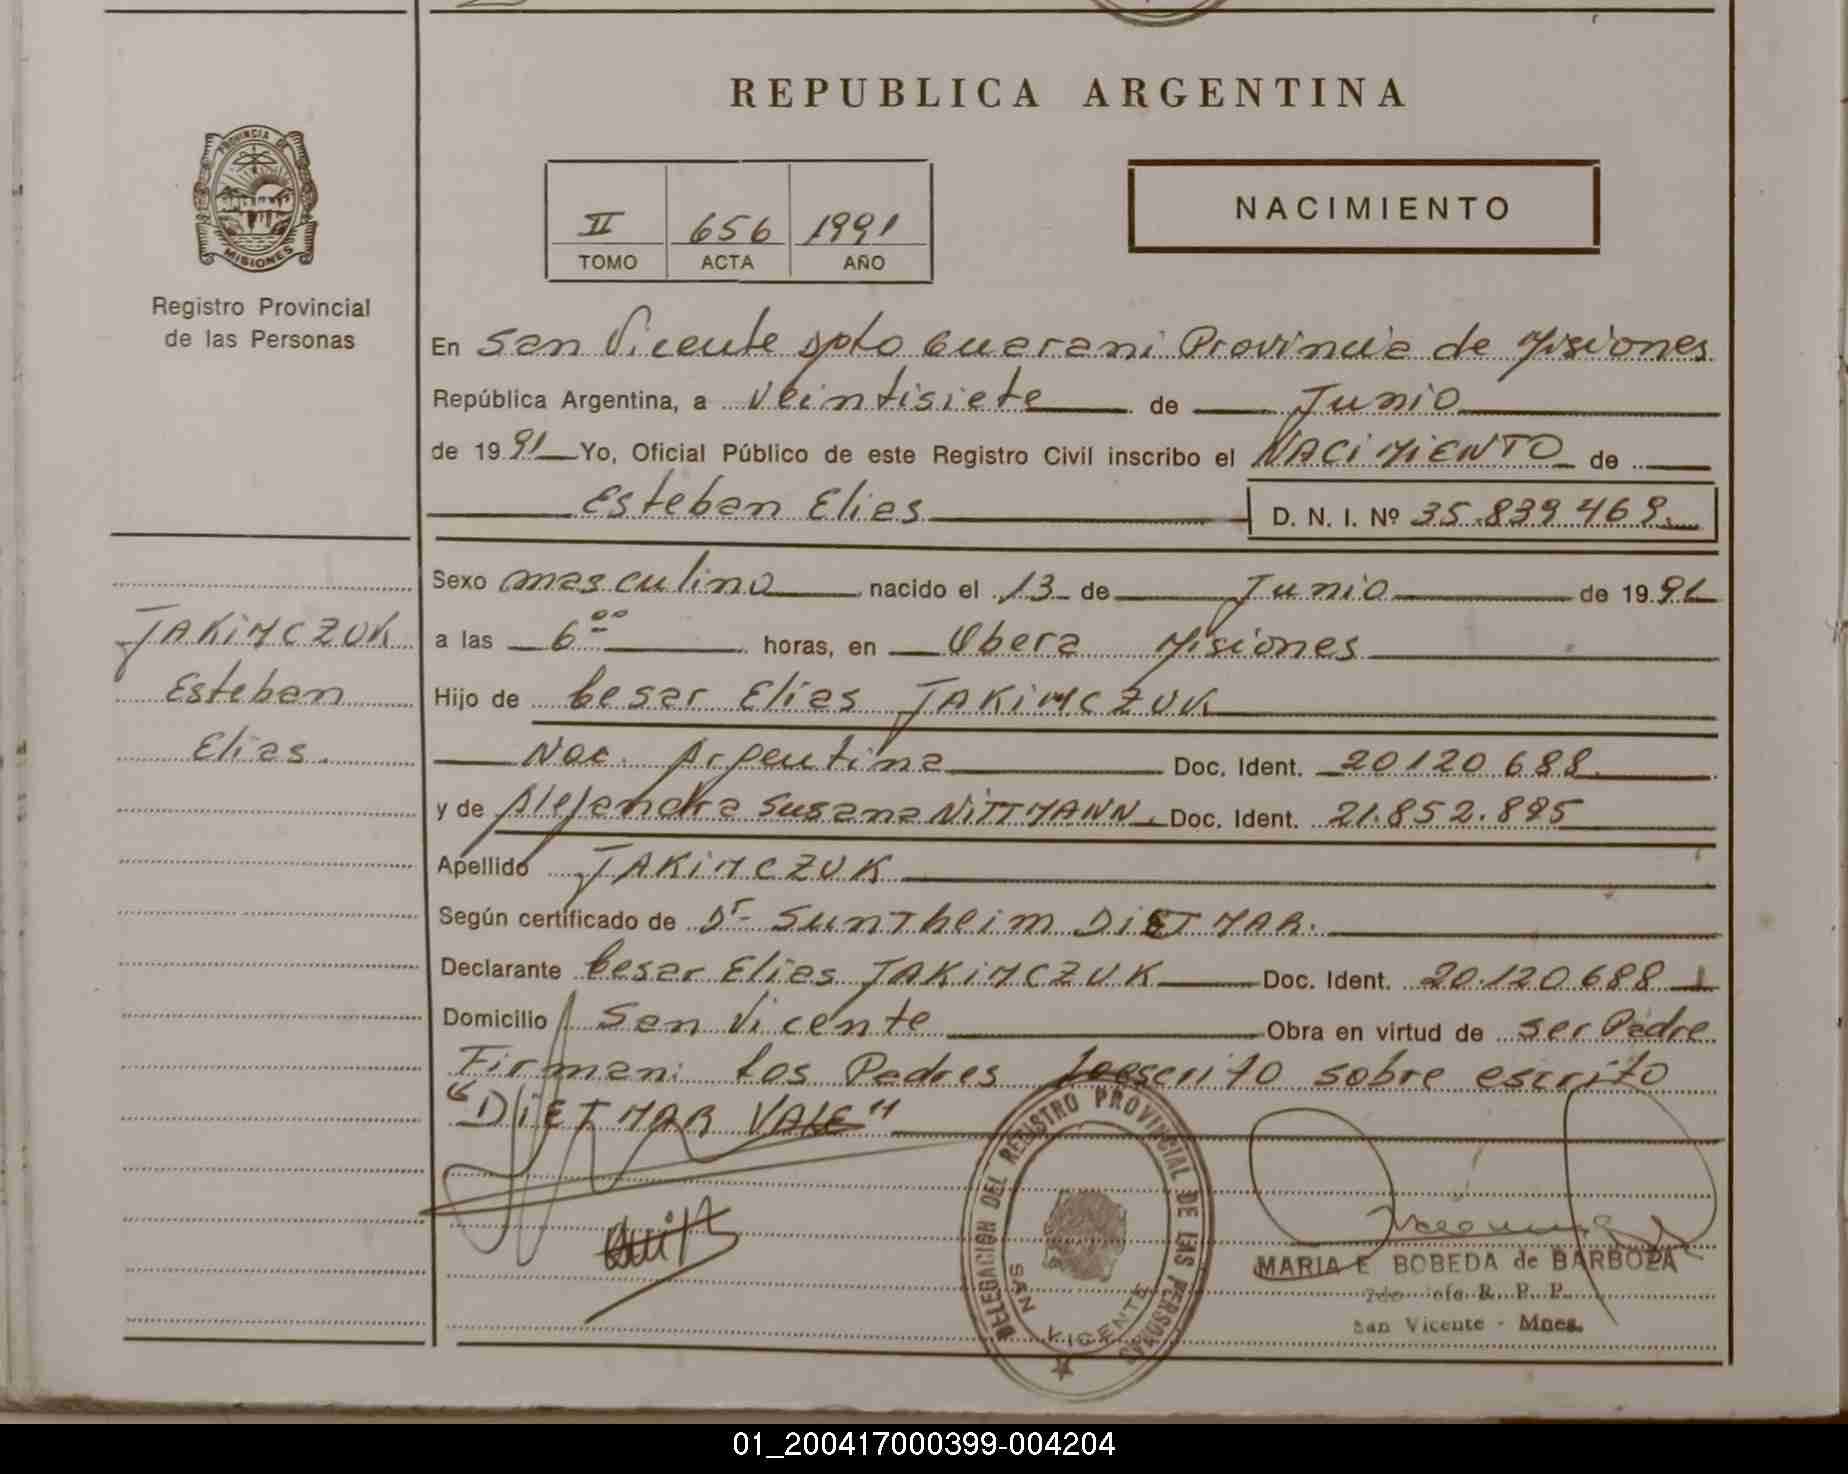 REPUBLICA ARGENTINA
PROVINCIA DE
MISIONES
Registro Provincial
de las Personas
II 656 1991
TOMO ACTA AÑO
NACIMIENTO
En San Vicente dpto Guarani Provincia de Misiones
República Argentina, a veintisiete de Junio
de 1991 Yo, Oficial Público de este Registro Civil inscribo el NACIMIENTO de
Esteban Elias D. N. I. Nº 35.839 469.
Sexo masculino nacido el 13 de Junio de 1991
a las 6 00 horas, en Obera Misiones
Hijo de Cesar Elias JAKIMCZUK
Nac. Argentina Doc. Ident. 20120 688
y de Alejandra Susana NITTMANN. Doc. Ident. 21.852.895
Apellido JAKIMCZUK
Según certificado de Dr Suntheim DIETMAR.
Declarante Cesar Elias JAKIMCZUK Doc. Ident. 20.120 688
Domicilio San Vicente Obra en virtud de ser Padre
Firman: los Padres escrito sobre escrito
"DIETMAR VALE"
JAKIMCZUK
Esteban
Elias.
DELEGACION DEL REGISTRO PROVINCIAL DE LAS PERSONAS
SAN VICENTE
MARIA E BOBEDA de BARBOZA
2do Jefe R. P. P.
San Vicente - Mnes.
01_200417000399-004204